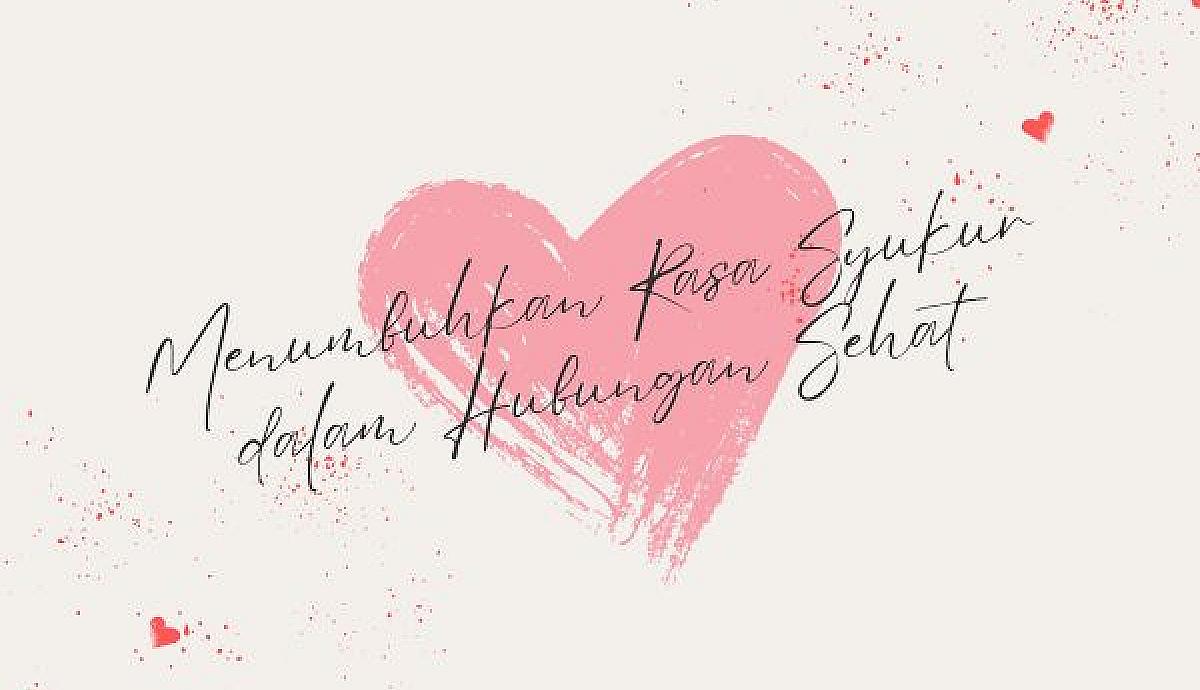 Menumbuhkan Rasa Syukur
dalam Hubungan Sehat